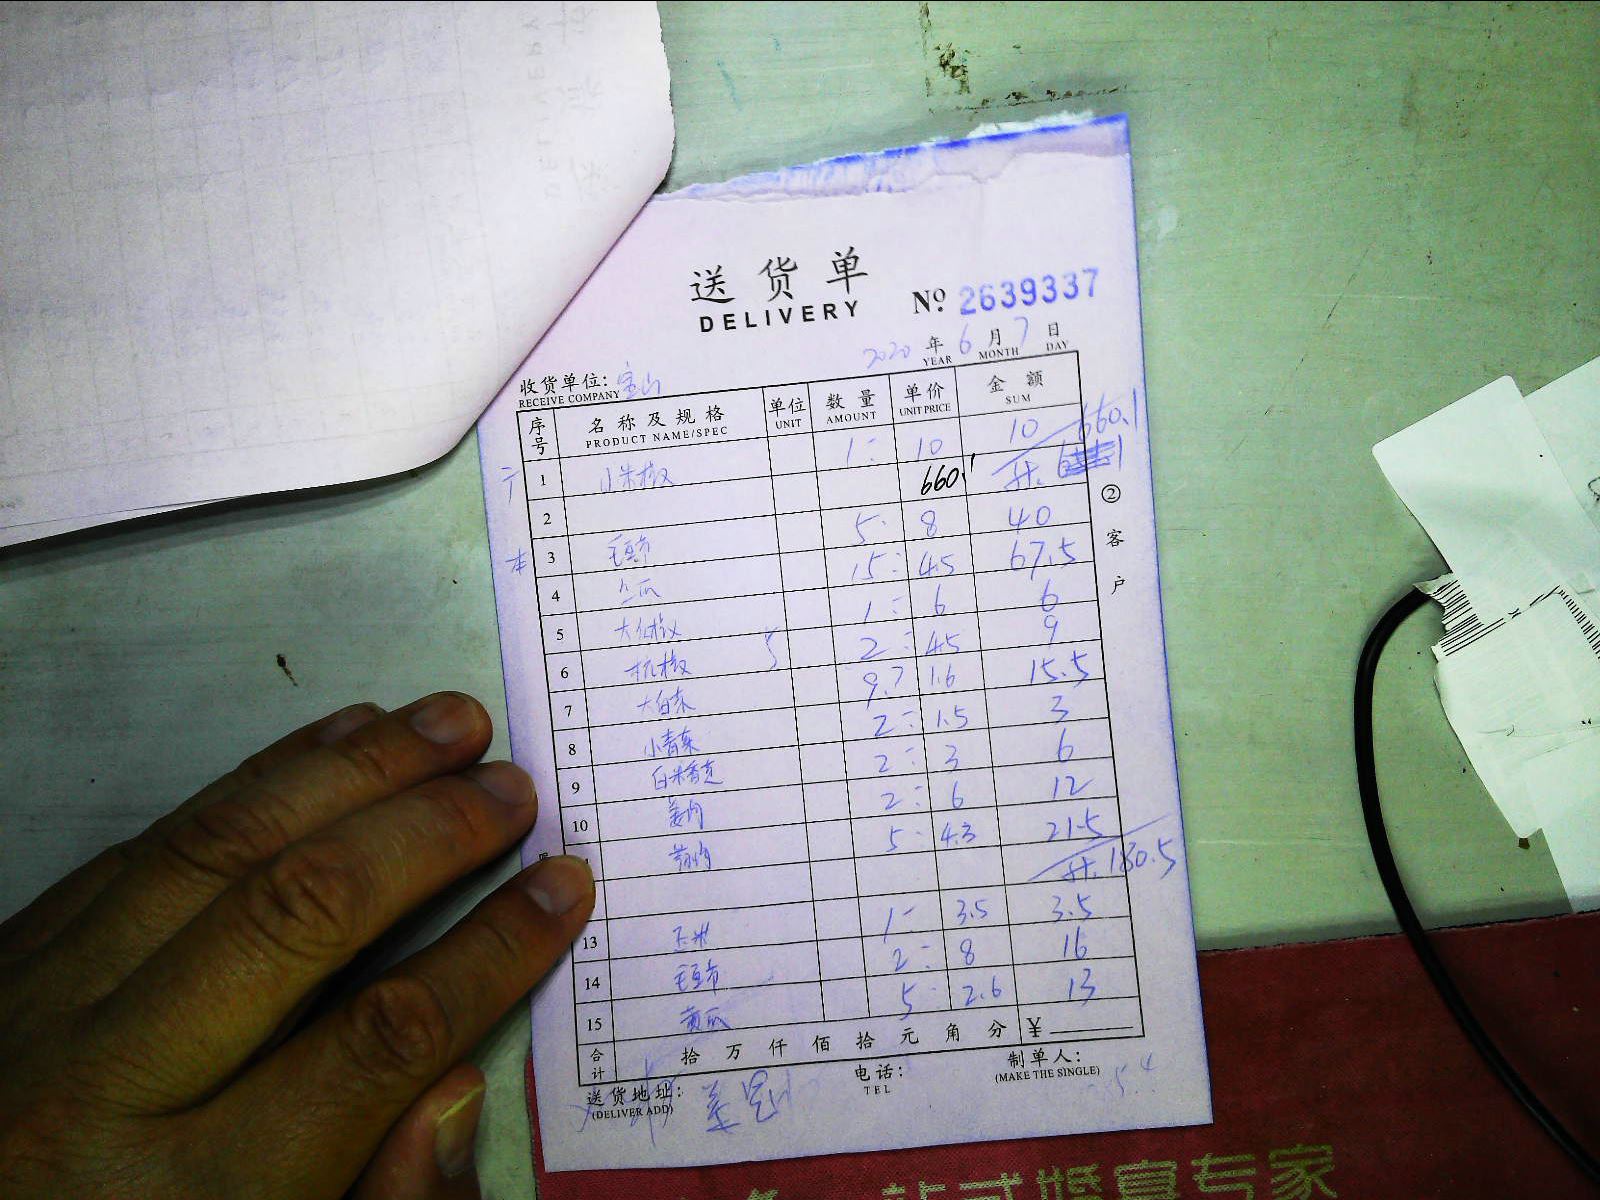 送货单
DELIVERY
No. 2639337
2020 年 6 月 7 日
YEAR MONTH DAY
收货单位: 宝山
RECEIVE COMPANY
序号 名称及规格 单位 数量 单价 金额
PRODUCT NAME/SPEC UNIT AMOUNT UNIT PRICE SUM
1 小米椒 1 10 10
660.1
660.1
2
3 毛豆节 5 8 40
4 15 4.5 67.5
5 大红椒 1 6 6
6 杭椒 2 4.5 9
7 大白菜 9.7 1.6 15.5
8 小青菜 2 1.5 3
9 2 3 6
10 姜肉 2 6 12
5 4.3 21.5
共. 180.5
13 玉米 1 3.5 3.5
14 毛豆节 2 8 16
15 黄瓜 5 2.6 13
合计 拾 万 仟 佰 拾 元 角 分 ¥
送货地址:
(DELIVER ADD)
电话:
TEL
制单人:
(MAKE THE SINGLE)
②客户
站式婚宴专家